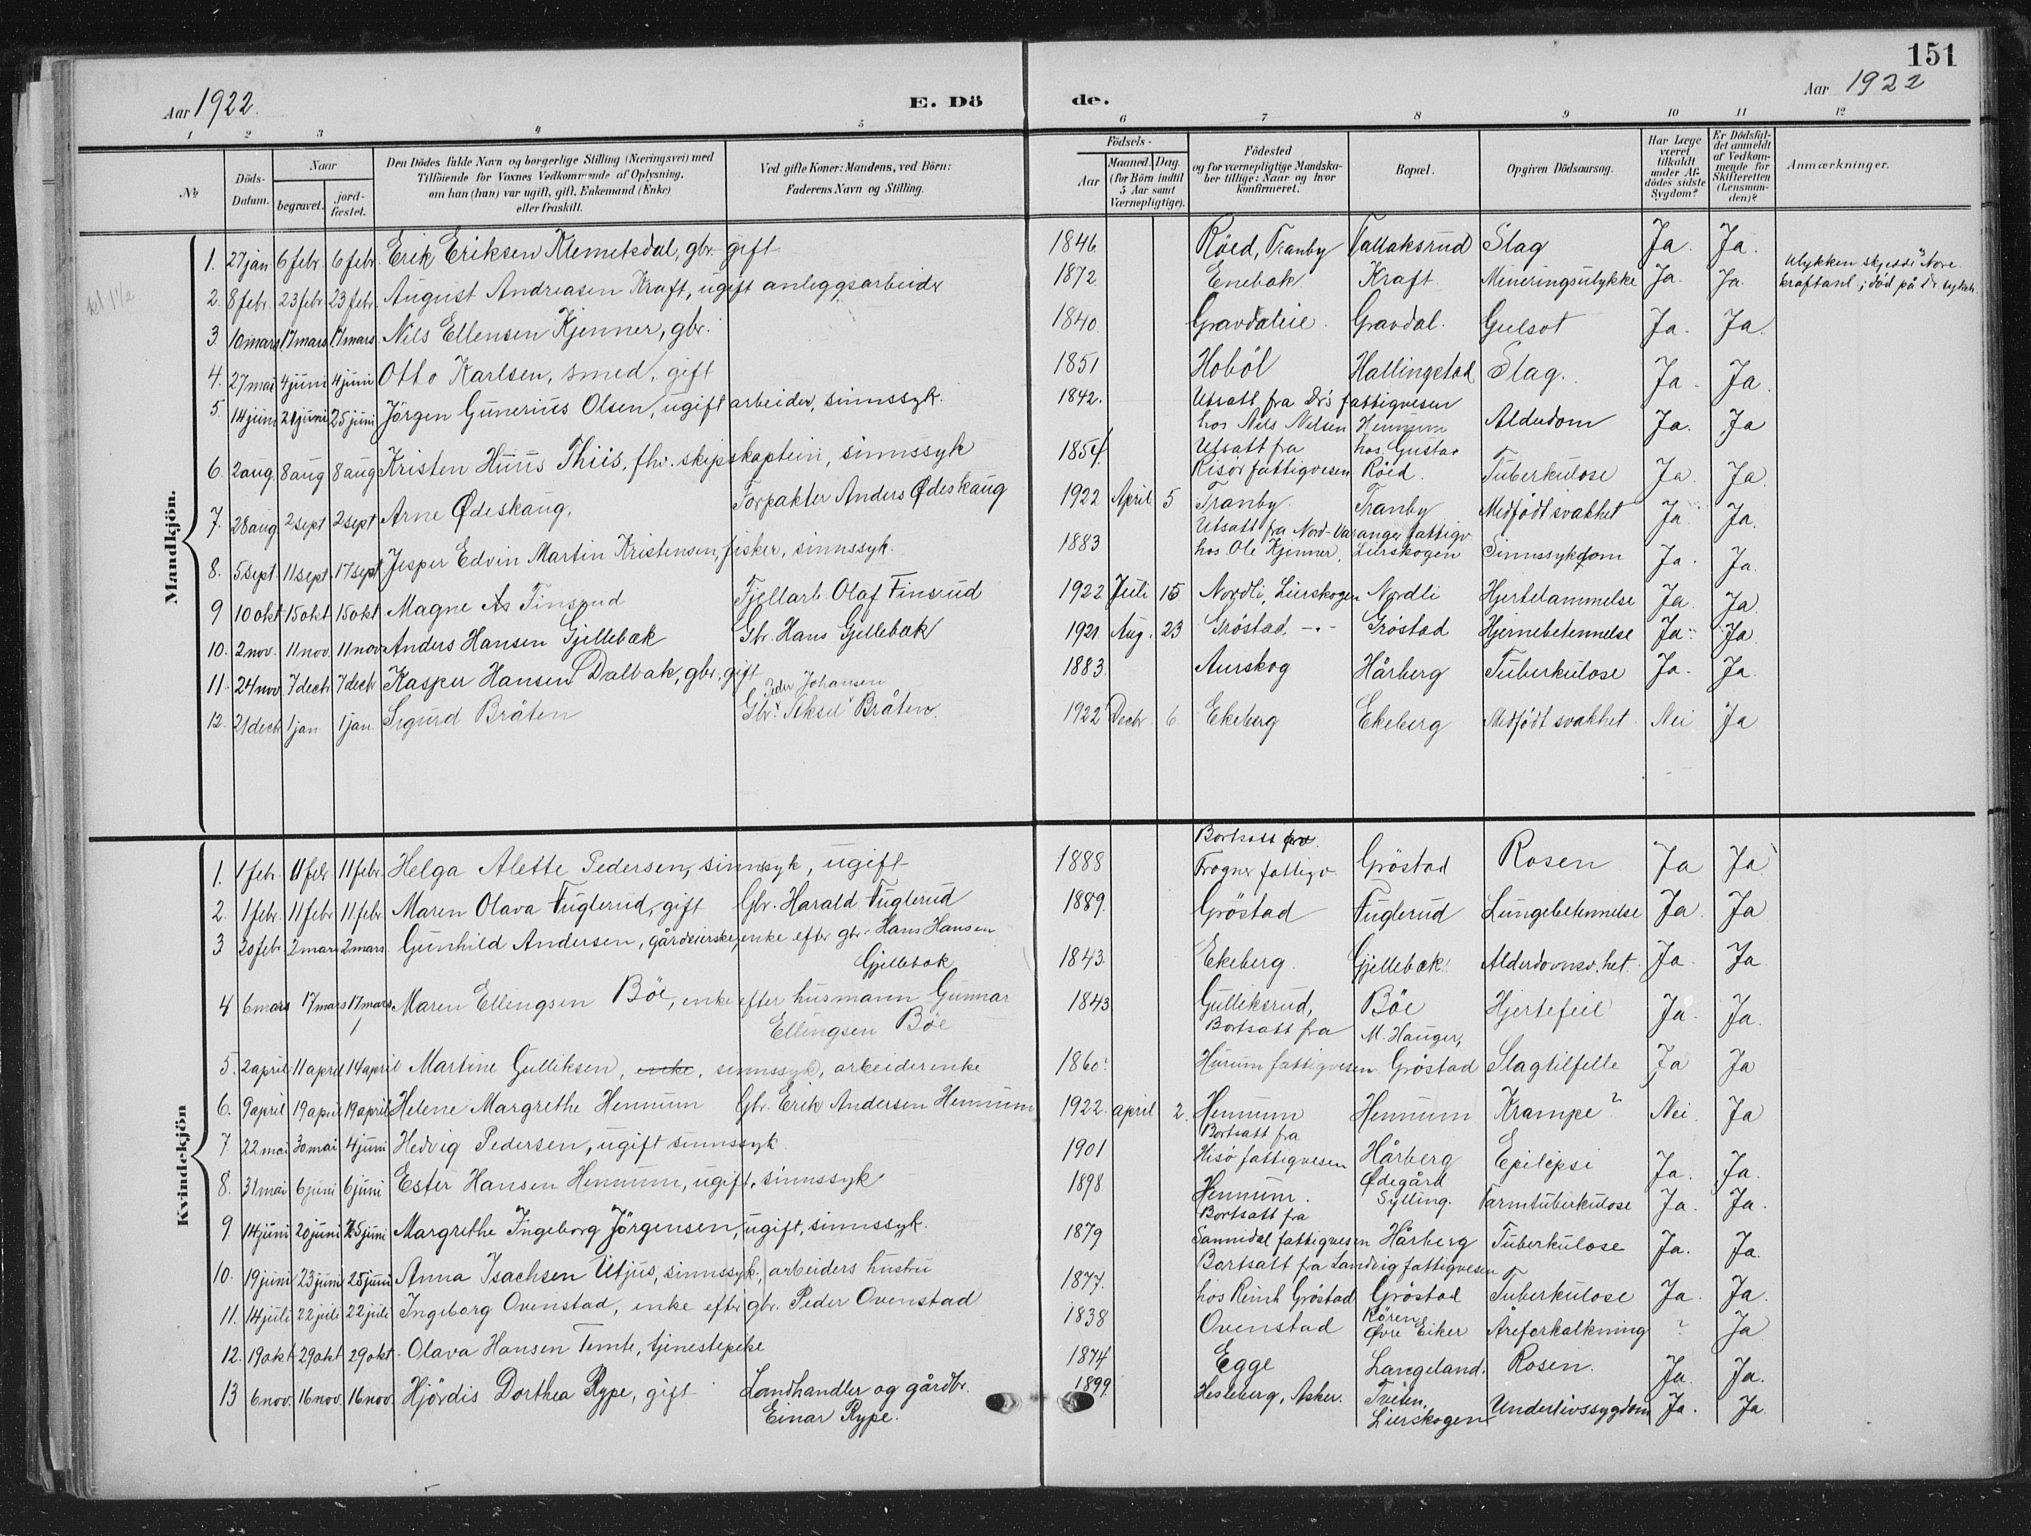 151
Aar 1922. E. Dö de. Aar 1922
1 2 3 4 5 6 7 8 9 10 11 12
№ Döds-Datum. Naar begravet. jordfæstet. Den Dödes fulde Navn og borgerlige Stilling (Næringsvei) med Tilföiende for Voxnes Vedkommende af Oplysning, om han (hun) var ugift, gift, Enkemand (Enke) eller fraskilt. Ved gifte Koner: Mandens, ved Börn: Faderens Navn og Stilling. Födsels- Aar Maaned. Dag. (for Börn indtil 5 Aar samt Værnepligtige). Födested og for værnepligtige Mandskaber tillige: Naar og hvor konfirmeret. Bopæl. Opgiven Dödsaarsag. Har Læge været tilkaldt under Afdödes sidste Sygdom? Er Dödsfaldet anmeldt af Vedkommende for Skifteretten (Lensmanden)? Anmærkninger.
Mandkjön.
1. 27 jan 6 febr. 6 febr. Erik Eriksen Klemetsdal, gbr. gift 1846 Röed, Tranby Tallaksrud Slag Ja. Ja.
2. 8 febr. 23 febr 23 febr. August Andreasen Kraft, ugift anleggsarbeider 1872 Enebak Kraft Mineringsulykke Ja. Ja. Ulykken skjedde i Nore kraftanl; död på Dr sykeh.
3 10 mars 17 mars 17 mars Nils Ellensen Kjenner, gbr. 1840. Gravdaleie. Gravdal. Gulsot Ja. Ja.
4. 27 mai 4 juni 4 juni Otto Karlsen, smed, gift 1851 Hoböl Hallingstad Slag. Ja. Ja.
5. 14 juni 21 juni 25 juni Jörgen Gunerius Olsen, ugift arbeider, sinnssyk. 1842. Utsatt fra Dr's fattigvesen
hos Nils Nilsen Hennum Alderdom Ja. Ja
6. 2 aug. 8 aug 8 aug Kristen Huus Thiis, fhv. skipskaptein, sinnssyk 1854. Utsatt fra hos Gustav
Risör fattigvesen Röed. Tuberkulose Ja. Ja.
7. 28 aug 2 sept 2 sept Arne Ødeskaug. Forpakter Anders Ødeskaug 1922 April 5 Tranby. Tranby Medfödt svakhet Ja Ja.
8. 5 sept. 11 sept. 17 sept Jesper Edvin Martin Kristensen, fisker, sinnssyk. 1883 Utsatt fra Nord-Varanger fattigv.
hos Ole Kjenner, Lierskogen Sinnssykdom Ja. Ja.
9 10 okt 15 okt 15 okt Magne Finsrud Fjellarb. Olaf Finsrud 1922 Juli 15 Nordli, Lierskogen Nordli Hjertelammelse Ja. Ja.
10. 2 nov. 11 nov. 11 nov Anders Hansen Gjellebæk Gbr. Hans Gjellebæk 1921 Aug. 23 Gröstad. -"- Gröstad Hjernebetennelse Ja. Ja
11. 24 nov 7 decbr 7 decbr Kasper Hansen Dalbak, gbr, gift 1883. Aurskog Hårberg Tuberkulose Ja. Ja.
12. 21 decb. 1 jan 1 jan. Sigurd Bråten Gbr. Peder Johansen Bråten. 1922 Decbr. 6. Ekeberg Ekeberg Medfödt svakhet. Nei Ja
Kvindekjön
1. 1 febr. 11 febr 11 febr. Helga Alette Pedersen, sinnssyk, ugift 1888 Bortsatt fra
Frogner fattigv. Gröstad Rosen Ja Ja
2. 1 febr. 11 febr 11 febr. Maren Olava Fuglerud, gift Gbr. Harald Fuglerud 1889. Gröstad Fuglerud Lungebetennelse Ja. Ja
3 20 febr 2 mars 2 mars. Gunhild Andersen, gårdeierske, enke efter gbr. Hans Hansen
Gjellebæk 1843. Ekeberg. Gjellebæk. Alderdomsv.het. Ja. Ja.
4 6 mars 17 mars 17 mars Maren Ellingsen Böe, enke efter husmann Gunnar
Ellingsen Böe 1843 Gulliksrud, Böe Hjertefeil Ja. Ja.
5. 2 april 11 april 14 april Martine Gulliksen, enke, sinnssyk, arbeiderenke 1860 Bortsatt fra M. Hauger,
Hurum fattigvesen. Gröstad Slagtilfelle Ja Ja
6. 9 april 19 april 19 april Helene Margrethe Hennum Gbr. Erik Andersen Hennum 1922. april 2. Hennum Hennum Krampe? Nei. Ja
7 22 mai 30 mai 4 juni Hedvig Pedersen, ugift sinnssyk. 1901 Bortsatt fra
Hisö fattigvesen Hårberg Epilepsi Ja. Ja.
8. 31 mai 6 juni 6 juni Ester Hansen Hennum, ugift. sinnssyk 1898. Hennum. Ødegård
Sylling. Tarmtuberkulose Ja. Ja.
9. 14 juni 20 juni 25 juni Margrethe Ingeborg Jörgensen, ugift, sinnssyk. 1879 Bortsatt fra
Sannidal fattigvesen Hårberg Tuberkulose Ja. Ja.
10. 19 juni 23 juni 25 juni Anna Isachsen Utjus, sinnssyk, arbeiders hustru 1877. Bortsatt fra Landvig fattigvesen
hos Reinh Gröstad Gröstad Tuberkulose Ja. Ja.
11. 14 juli 22 juli 22 juli Ingeborg Ovenstad, enke efter gbr. Peder Ovenstad 1838 Ovenstad Kören
Øvre Eiker Åreforkalkning ? Ja
12. 19 okt 29 okt 29 okt. Olava Hansen Temte, tjenestepike 1874 Egge Langeland. Rosen. Ja. Ja.
13 6 nov. 16 nov. 16 nov. Hjördis Dorthea Rype, gift Landhandler og gårdbr.
Einar Rype. 1899 Hesleberg, Asker. Tveten,
Lierskogen Underlivssygdom Ja. Ja.